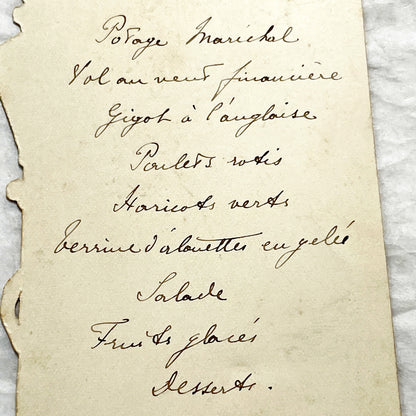 Potage Maréchal
Vol au vent financière
Gigot à l'anglaise
Poulets rotis
Haricots verts
Terrine d'alouettes en gelée
Salade
Fruits glacés
Desserts.